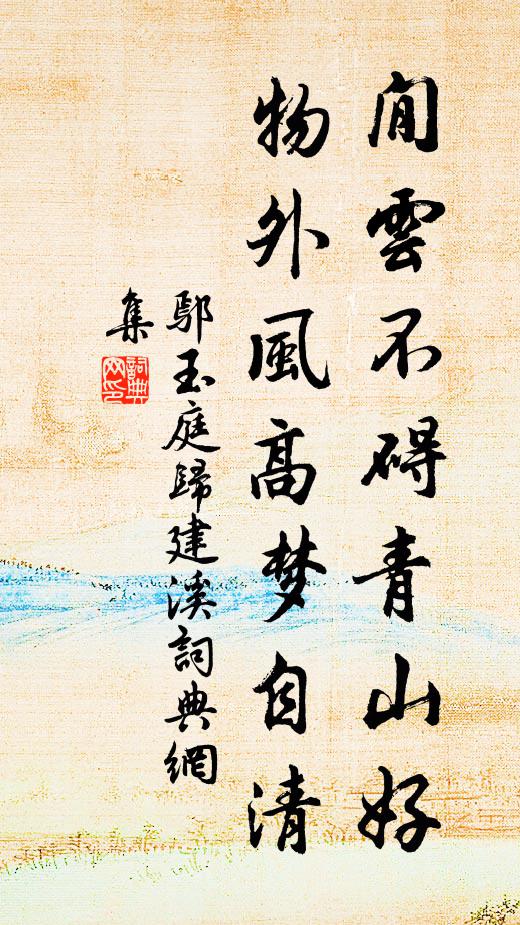 閒雲不碍青山好
物外風髙梦自清
玉庭歸建溪詞典網
集
詞典
网印